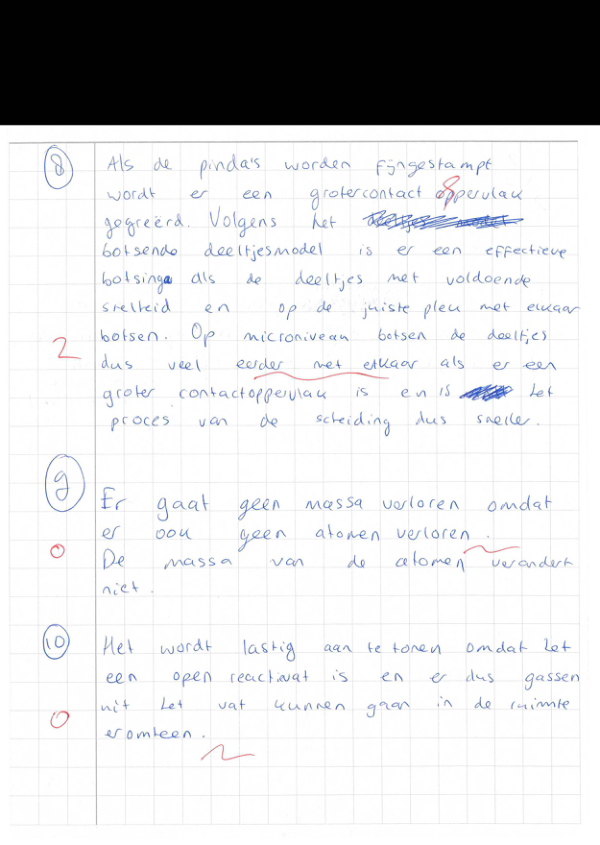 8 Als de pinda's worden fijngestampt
wordt er een groter contact oppervlak
gegreërd. Volgens het
botsende deeltjesmodel is er een effectieve
botsing als de deeltjes met voldoende
snelheid en op de juiste plek met elkaar
botsen. Op microniveau botsen de deeltjes
2 dus veel eerder met elkaar als er een
groter contactoppervlak is en is het
proces van de scheiding dus sneller.
9 Er gaat geen massa verloren omdat
er ook geen atomen verloren.
0 De massa van de atomen verandert
niet.
10 Het wordt lastig aan te tonen omdat het
een open reactievat is en er dus gassen
0 uit het vat kunnen gaan in de ruimte
er omheen.